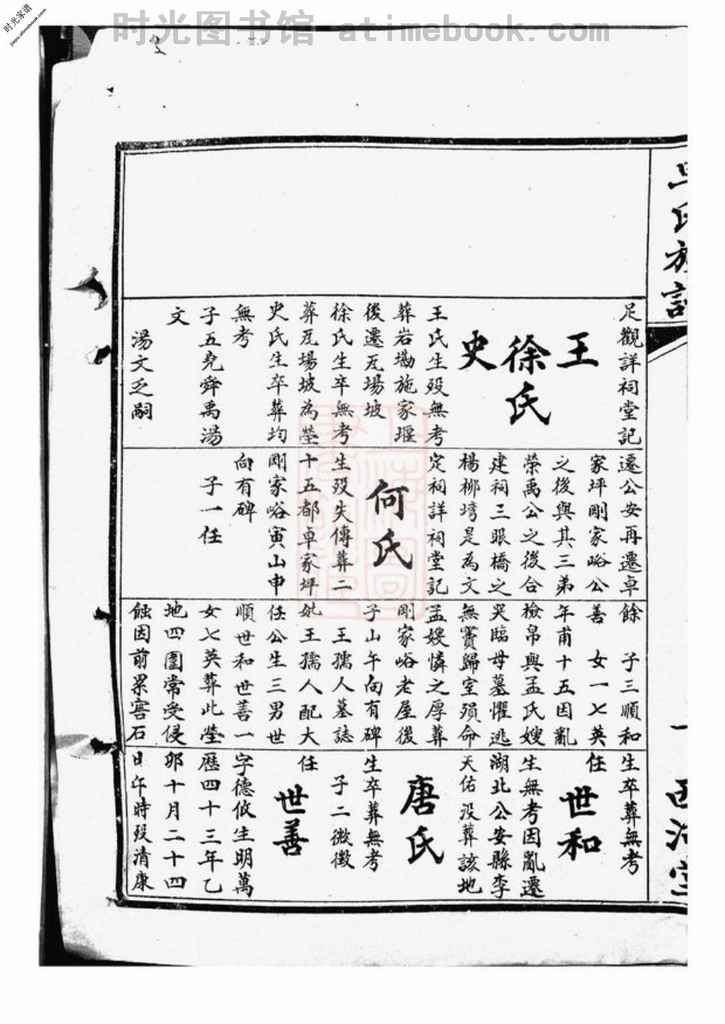 时光图书馆 atimebook.com
时光家谱
氏族譜
足觀詳祠堂記
王
徐氏
史
王氏生殁無考
葬岩坳施家堰
後遷瓦場坡
徐氏生卒無考
葬瓦場坡為塋
史氏生卒葬均
無考
子五堯舜禹湯
文
湯文乏嗣
遷公安再遷卓
家坪剛家峪公
之後與其三弟
榮禹公之後合
建祠三眼橋之
楊柳塆是為文
定祠詳祠堂記
何氏
生殁失傳葬二
十五都卓家坪
剛家峪寅山申
向有碑
子一任
餘 子三順和
善 女一七英
年甫十五因亂
檢帛與孟氏嫂
哭臨母墓懼逃
無賓歸室殞命
孟嫂憐之厚葬
剛家峪老屋後
子山午向有碑
王孺人墓誌
妣王孺人配大
任公生三男世
順世和世善一
女七英葬此塋
地四圍常受侵
蝕因前累害石
生卒葬無考
任
世和
生無考因亂遷
湖北公安縣李
天佑没葬該地
唐氏
生卒葬無考
子二微徵
任
世善
字德攸生明萬
曆四十三年乙
卯十月二十四
日午時殁清康